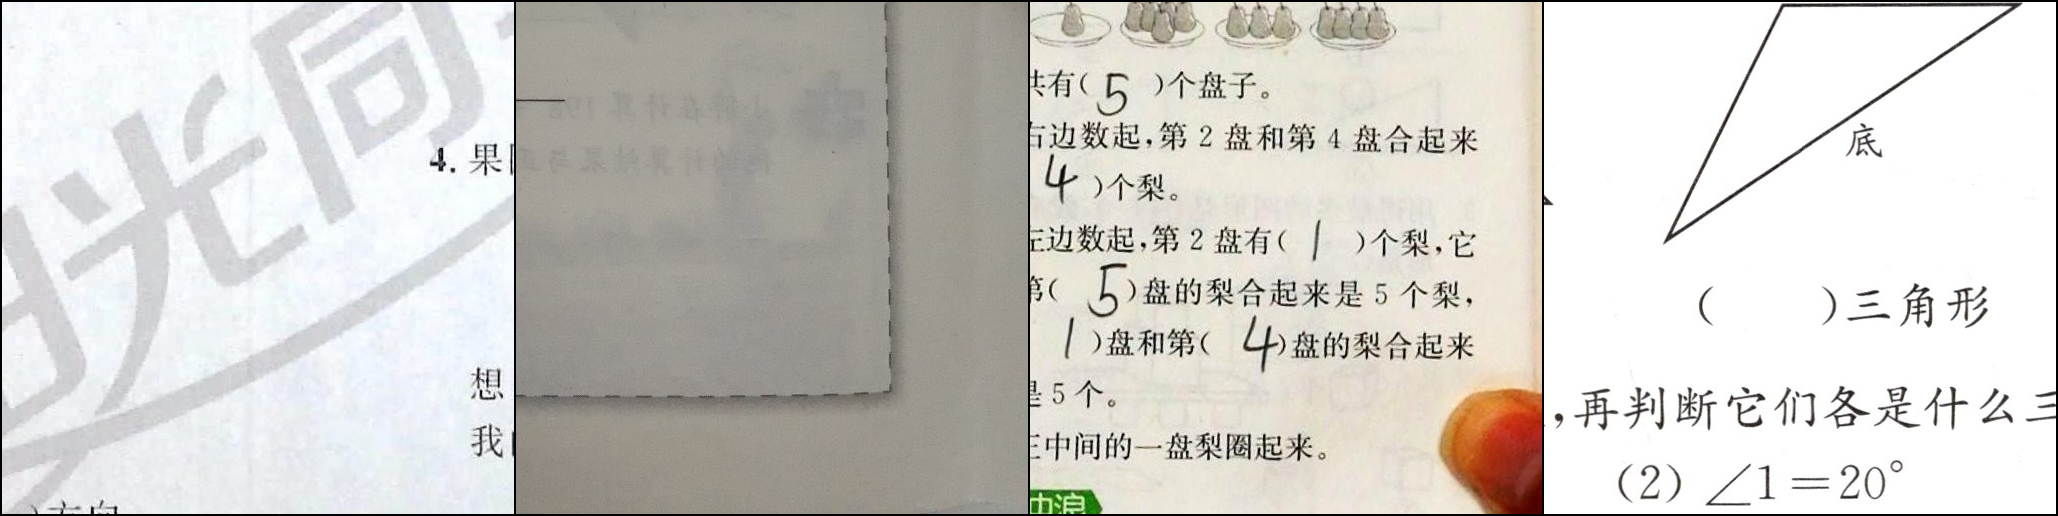 阳光同
4. 果
想
我
方向
小 在计算 198
他的计算结果与正
共有( 5 )个盘子。
右边数起,第 2 盘和第 4 盘合起来
4 )个梨。
左边数起,第 2 盘有( 1 )个梨,它
第( 5 )盘的梨合起来是 5 个梨,
1 )盘和第( 4 )盘的梨合起来
是 5 个。
中间的一盘梨圈起来。
冲浪
底
( )三角形
,再判断它们各是什么三
(2) ∠1=20°